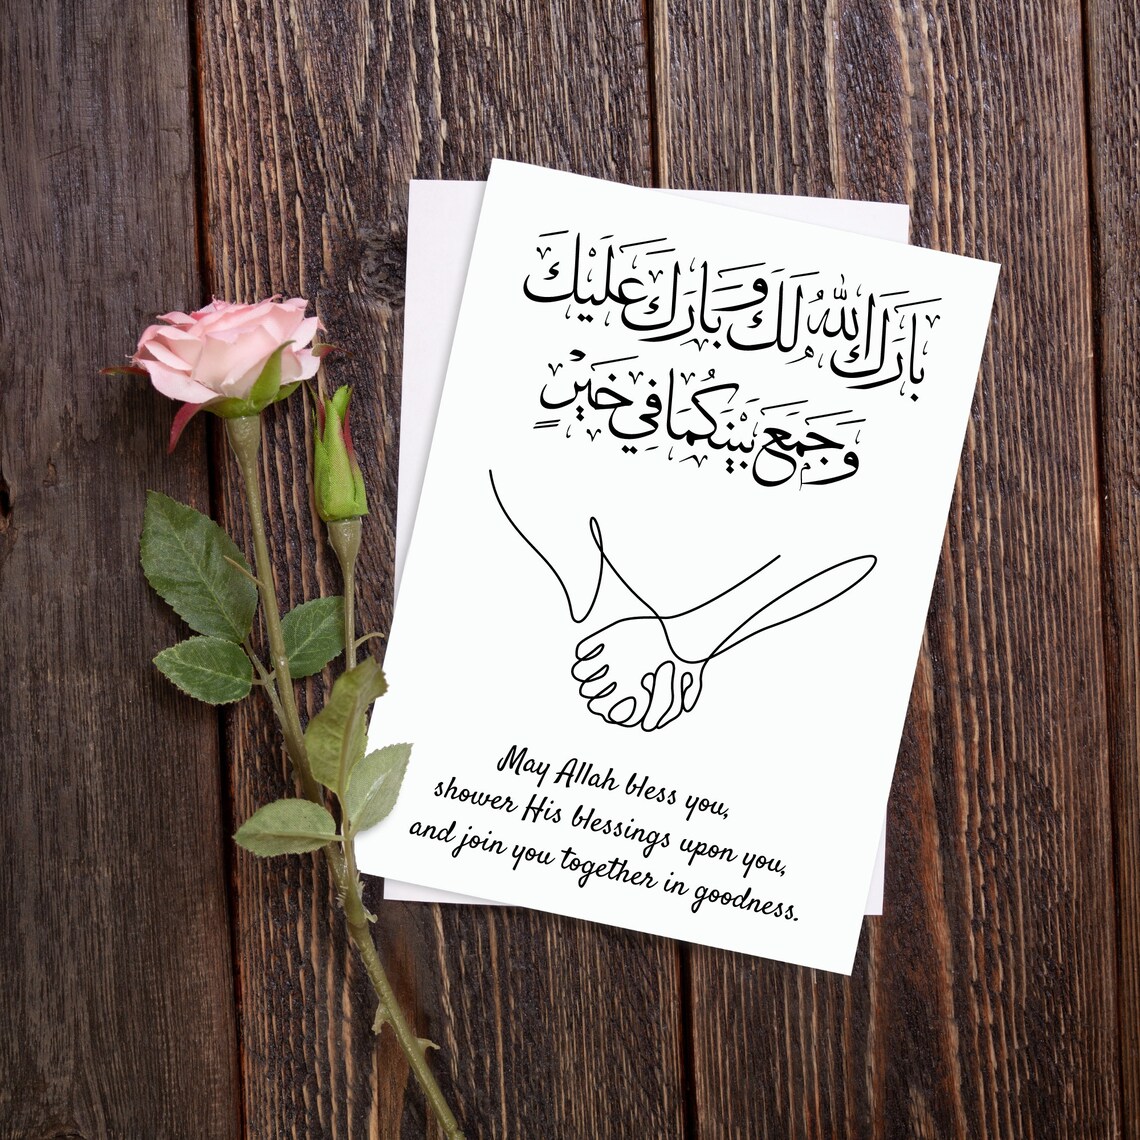 بَارَكَ اللهُ لَكَ وَبَارَكَ عَلَيْكَ
وَجَمَعَ بَيْنَكُمَا فِي خَيْرٍ
May Allah bless you,
shower His blessings upon you,
and join you together in goodness.